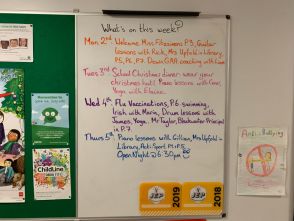 What's on this week?
Mon 2nd: Welcome Miss Fitzsimons P.3, Guitar
Lessons with Rick, Mrs Upfold in Library
P.5, P.6, P.7. Down GAA coaching with Conor
Tues 3rd School Christmas dinner wear your
Christmas hat! Piano lessons with
Yoga with Elaine.
Wed 4th Flu Vaccinations, P.6 swimming,
Irish with Maria, Drum lessons with
James, Yoga, Mr Taylor, Blackwater Principal
in P.7.
Thurs 5th Piano lessons with Gillian, Mrs Upfold -
Library, Anti Sport P1-P.5
Open Night 6:30pm
Anti-Bullying
ChildLine
JEP
2019
JEP
2018